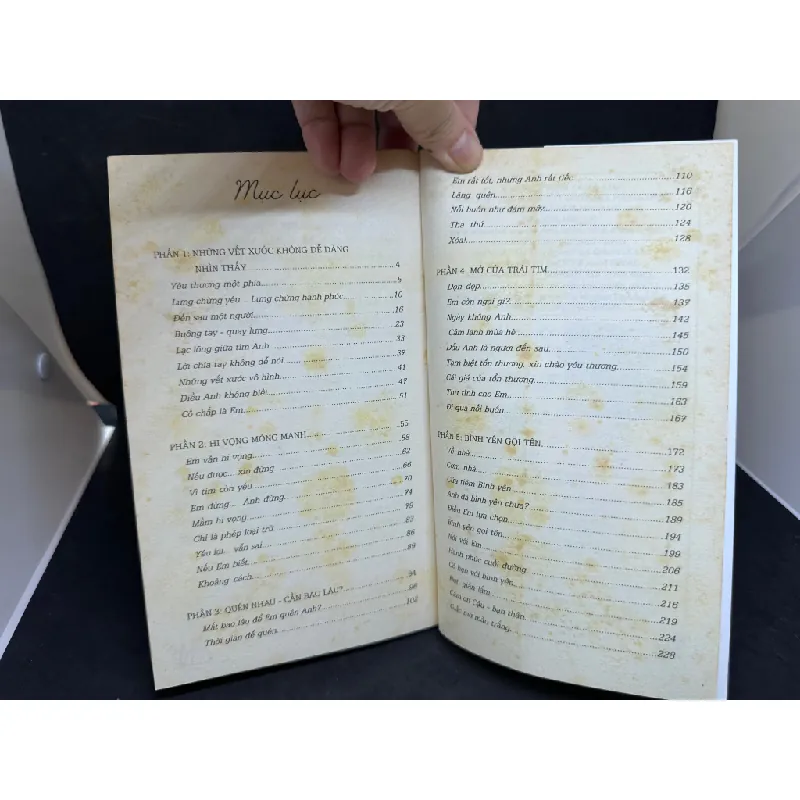 Mục lục
PHẦN 1: NHỮNG VẾT XƯỚC KHÔNG DỄ DÀNG
NHÌN THẤY 4
Yêu thương một phía 5
Lưng chừng yêu... Lưng chừng hạnh phúc 10
Đến sau một người 16
Buông tay - quay lưng 23
Lạc lõng giữa tim Anh 33
Lời chia tay không dễ nói 39
Những vết xước vô hình 41
Điều Anh không biết 47
Cố chấp là Em 51
PHẦN 2: HI VỌNG MỎNG MANH 55
Em vẫn hi vọng 58
Nếu được... xin đừng 62
Vì tim còn yêu 66
Em đừng - Anh đừng 70
Mầm hi vọng 74
Chỉ là phép loại trừ
Yên lại... vẫn sai
Nếu Em biết 86
Khoảng cách 89
PHẦN 3: QUÊN NHAU - CẦN BAO LÂU? 94
Mất bao lâu để Em quên Anh? 98
Thời gian để quên 102
Em rất tốt, nhưng Anh rất tiếc 110
Lãng quên 116
Nỗi buồn như đám mây 120
Tha thứ 124
Xóa! 128
PHẦN 4: MỞ CỬA TRÁI TIM 132
Dọn dẹp 135
Em còn ngại gì? 137
Ngày không Anh 142
Cảm lạnh mùa hè 145
Dẫu Anh là người đến sau 150
Tạm biệt tổn thương, xin chào yêu thương 154
Cái giá của tổn thương 159
Tựa tình cho Em 163
Đi qua nỗi buồn 167
PHẦN 5: BÌNH YÊN GỌI TÊN 172
Về nhà 173
Con, nhà 183
Gửi tiệm Bình yên 185
Anh đã bình yên chưa? 189
Điều Em lựa chọn 194
Bình yên gọi tên 199
Nói với Em 206
Hạnh phúc cuối đường 211
Có hẹn với bình yên 215
219
Cảm ơn Cậu - bạn thân 224
228